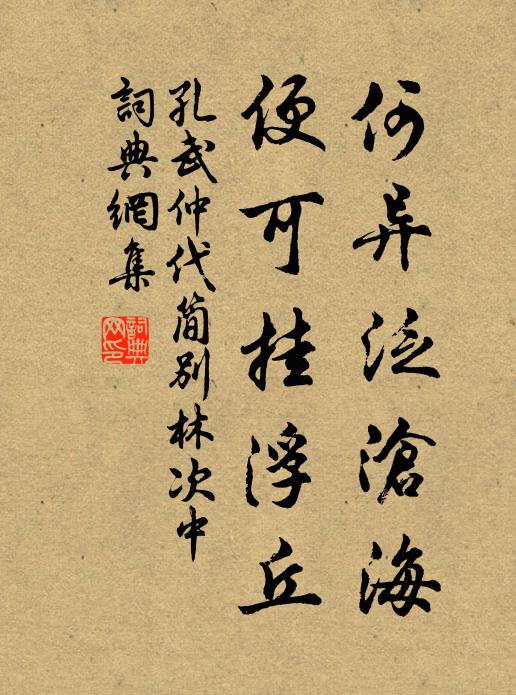 何异泛滄海
便可挂浮丘
孔武仲代简别林次中
詞典網集
詞典
网印